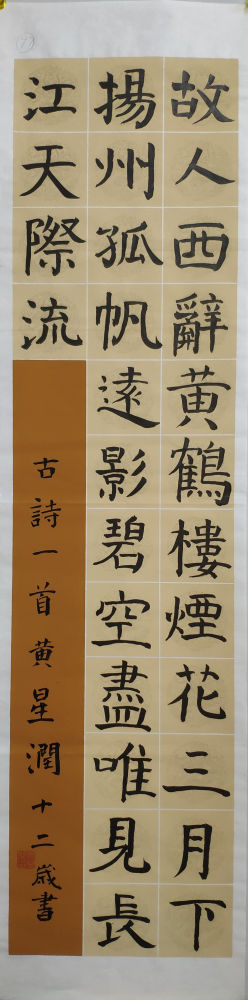 故人西辭黃鶴樓煙花三月下
揚州孤帆遠影碧空盡唯見長
江天際流
古詩一首黃星潤十二歲書